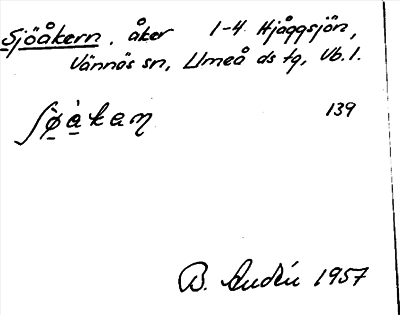 Sjöåkern. åker 1-4 Hjåggsjön,
Vännäs sn, Umeå ds tg, Vb. l.
139
B. 1957